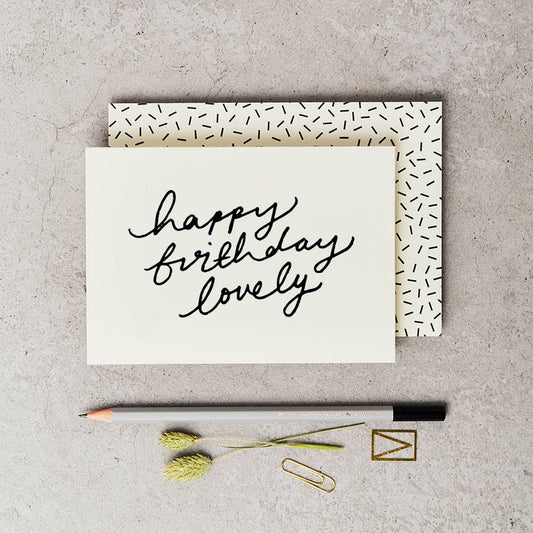 happy
birthday
lovely